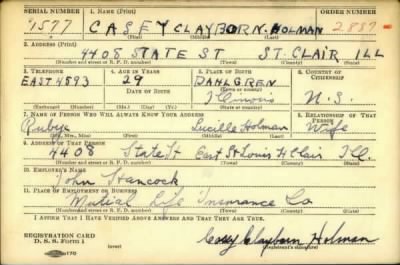 SERIAL NUMBER 1. NAME (Print) ORDER NUMBER
CASEY CLAYBORN HOLMAN 2887
(First) (Middle) (Last)
2. ADDRESS (Print)
4408 STATE ST ST. CLAIR ILL
(Number and street or R. F. D. number) (Town) (County) (State)
3. TELEPHONE 4. AGE IN YEARS 5. PLACE OF BIRTH 6. COUNTRY OF CITIZENSHIP
EAST 4893 29 DAHLGREN
DATE OF BIRTH (Town or county)
Illinois U.S.
(Exchange) (Number) (Mo.) (Day) (Yr.) (State or country)
7. NAME OF PERSON WHO WILL ALWAYS KNOW YOUR ADDRESS 8. RELATIONSHIP OF THAT PERSON
Rubye Lucille Holman Wife
(Mr., Mrs., Miss) (First) (Middle) (Last)
9. ADDRESS OF THAT PERSON
4408 State St East St. Louis St Clair Ill.
(Number and street or R. F. D. number) (Town) (County) (State)
10. EMPLOYER'S NAME
John Hancock
11. PLACE OF EMPLOYMENT OR BUSINESS
Mutial Life Insurance Co
(Number and street or R. F. D. number) (Town) (County) (State)
I AFFIRM THAT I HAVE VERIFIED ABOVE ANSWERS AND THAT THEY ARE TRUE.
REGISTRATION CARD
D. S. S. Form 1 (over) Casey Clayborn Holman
(Registrant's signature)